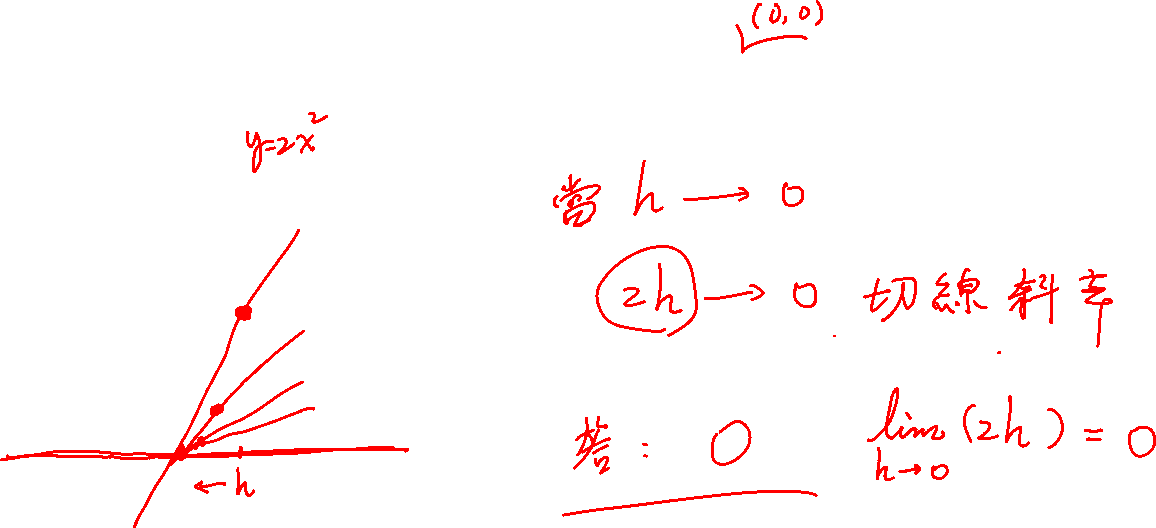 (0,0)
y=2x²
當 h → 0
2h → 0 切線斜率
答: 0 lim (2h) = 0
h→0
← h